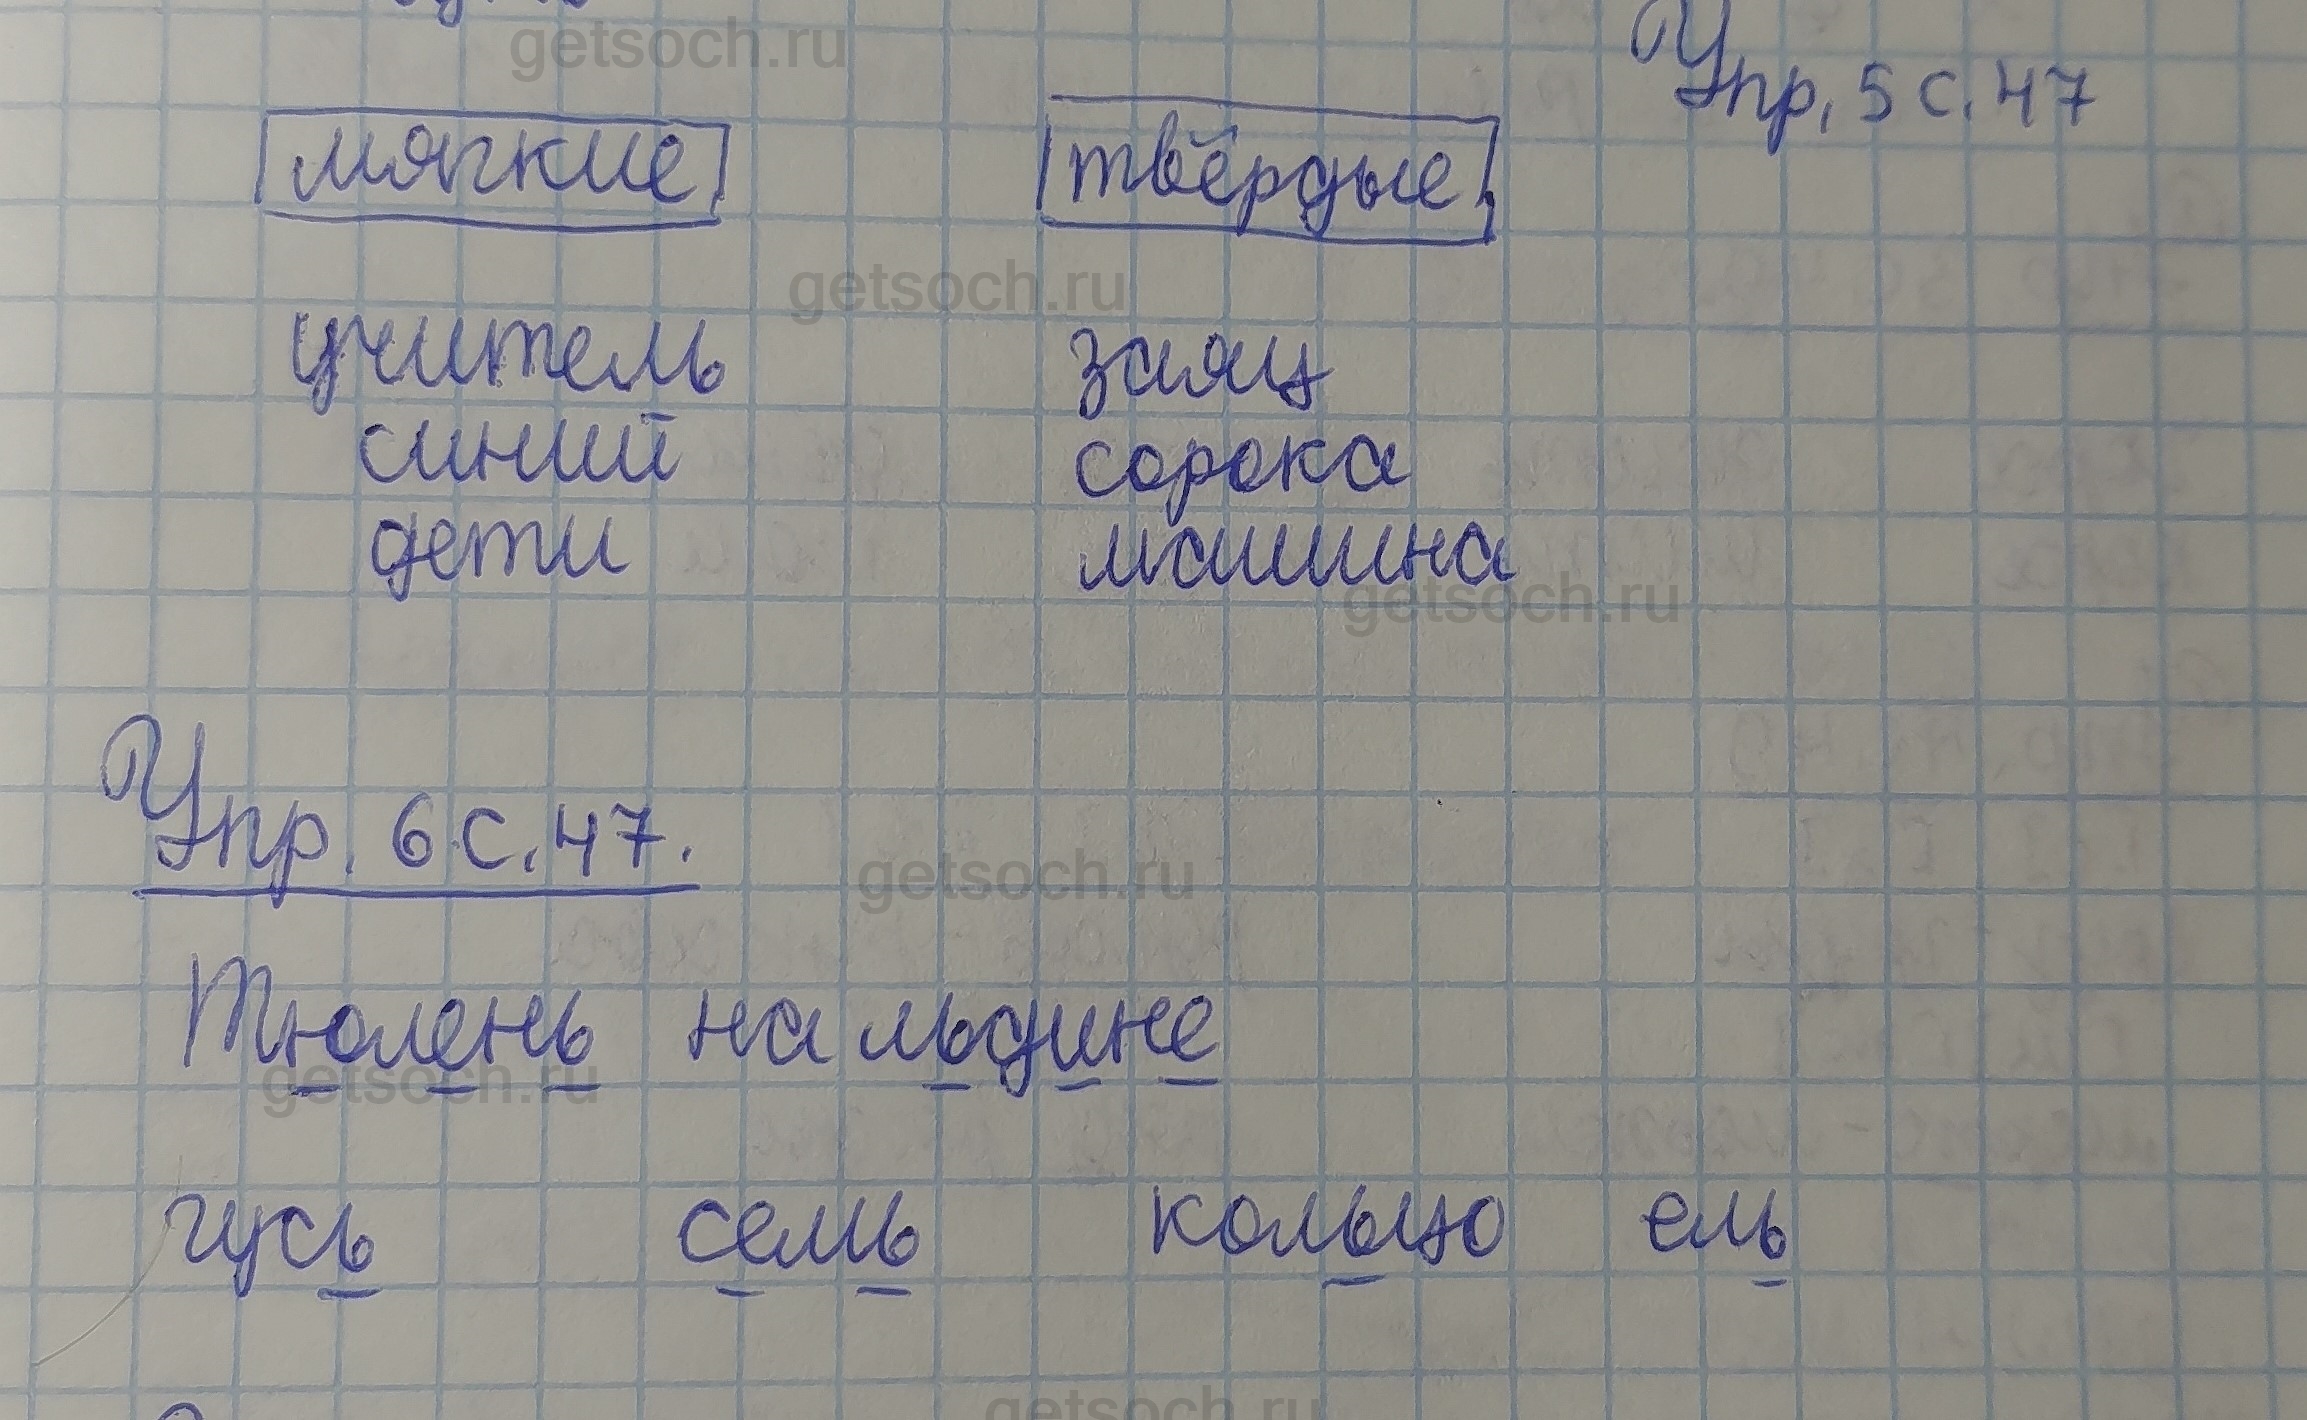 getsoch.ru
Упр. 5 с. 47
мягкие твёрдые
getsoch.ru
учитель заяц
синий сорока
дети машина
getsoch.ru
Упр. 6 с. 47.
getsoch.ru
Тюлень на льдине
getsoch.ru
гусь семь кольцо ель
getsoch.ru